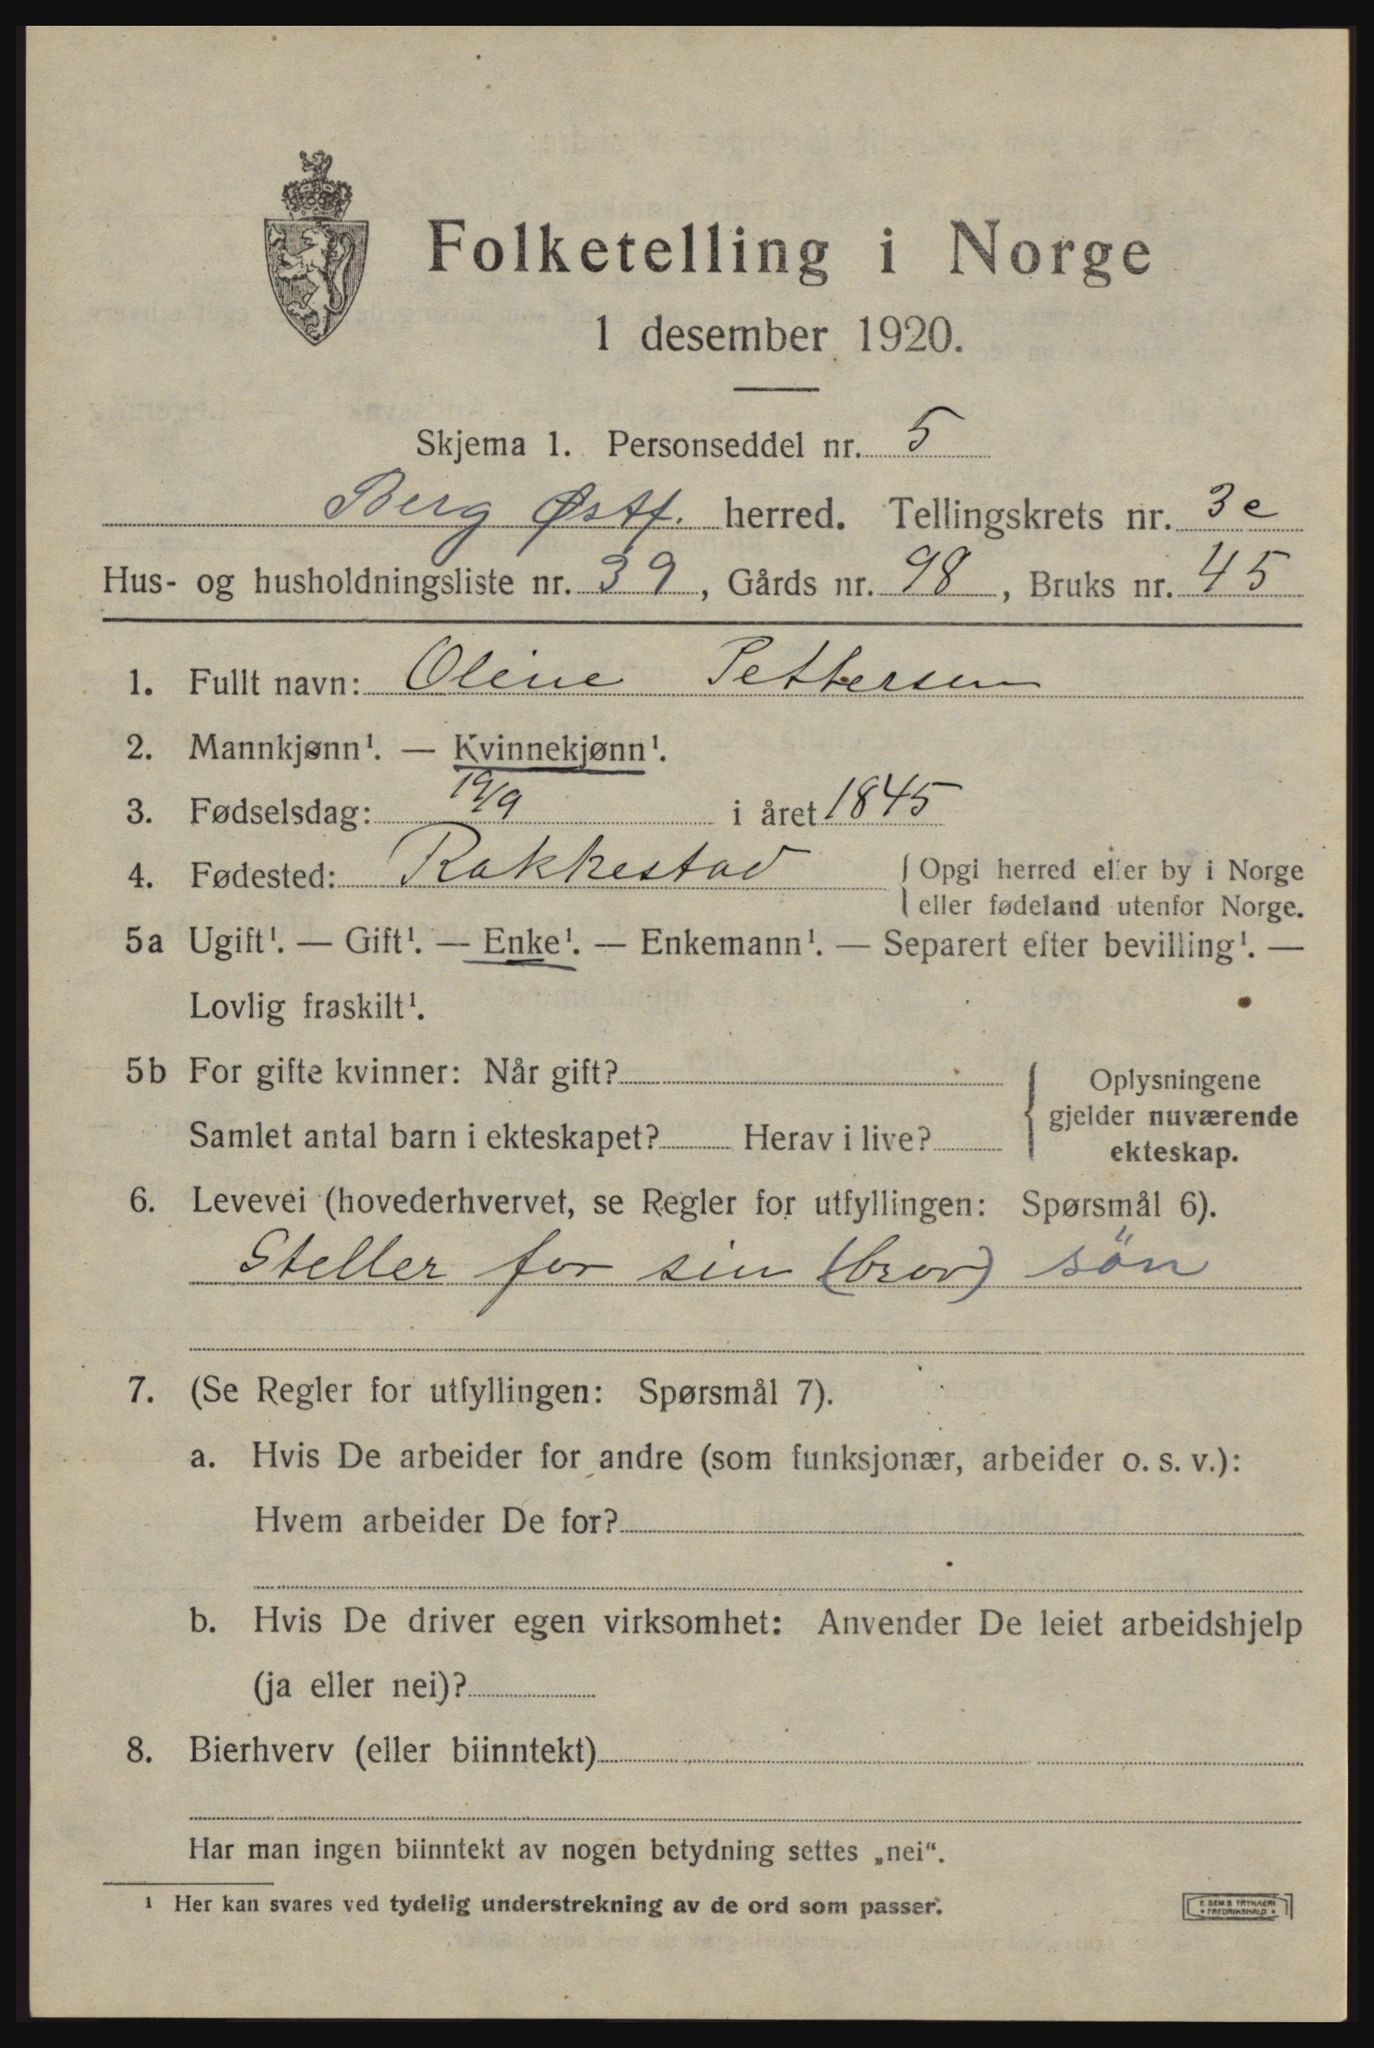 Folketelling i Norge
1 desember 1920.
Skjema 1. Personseddel nr. 5
Berg Østf. herred. Tellingskrets nr. 3e
Hus- og husholdningsliste nr. 39, Gårds nr. 98, Bruks nr. 45
1. Fullt navn: Oline Pettersen
2. Mannkjønn¹. — Kvinnekjønn¹.
3. Fødselsdag: 19/9 i året 1845
4. Fødested: Rakkestad { Opgi herred eller by i Norge
eller fødeland utenfor Norge.
5a Ugift¹. — Gift¹. — Enke¹. — Enkemann¹. — Separert efter bevilling¹. —
Lovlig fraskilt¹.
5b For gifte kvinner: Når gift?
Samlet antal barn i ekteskapet? Herav i live?
Oplysningene
gjelder nuværende
ekteskap.
6. Levevei (hovederhvervet, se Regler for utfyllingen: Spørsmål 6).
Steller for sin (bror) sön
7. (Se Regler for utfyllingen: Spørsmål 7).
a. Hvis De arbeider for andre (som funksjonær, arbeider o. s. v.):
Hvem arbeider De for?
b. Hvis De driver egen virksomhet: Anvender De leiet arbeidshjelp
(ja eller nei)?
8. Bierhverv (eller biinntekt)
Har man ingen biinntekt av nogen betydning settes „nei“.
¹ Her kan svares ved tydelig understrekning av de ord som passer.
E. SEM'S TRYKKERI
FREDRIKSHALD